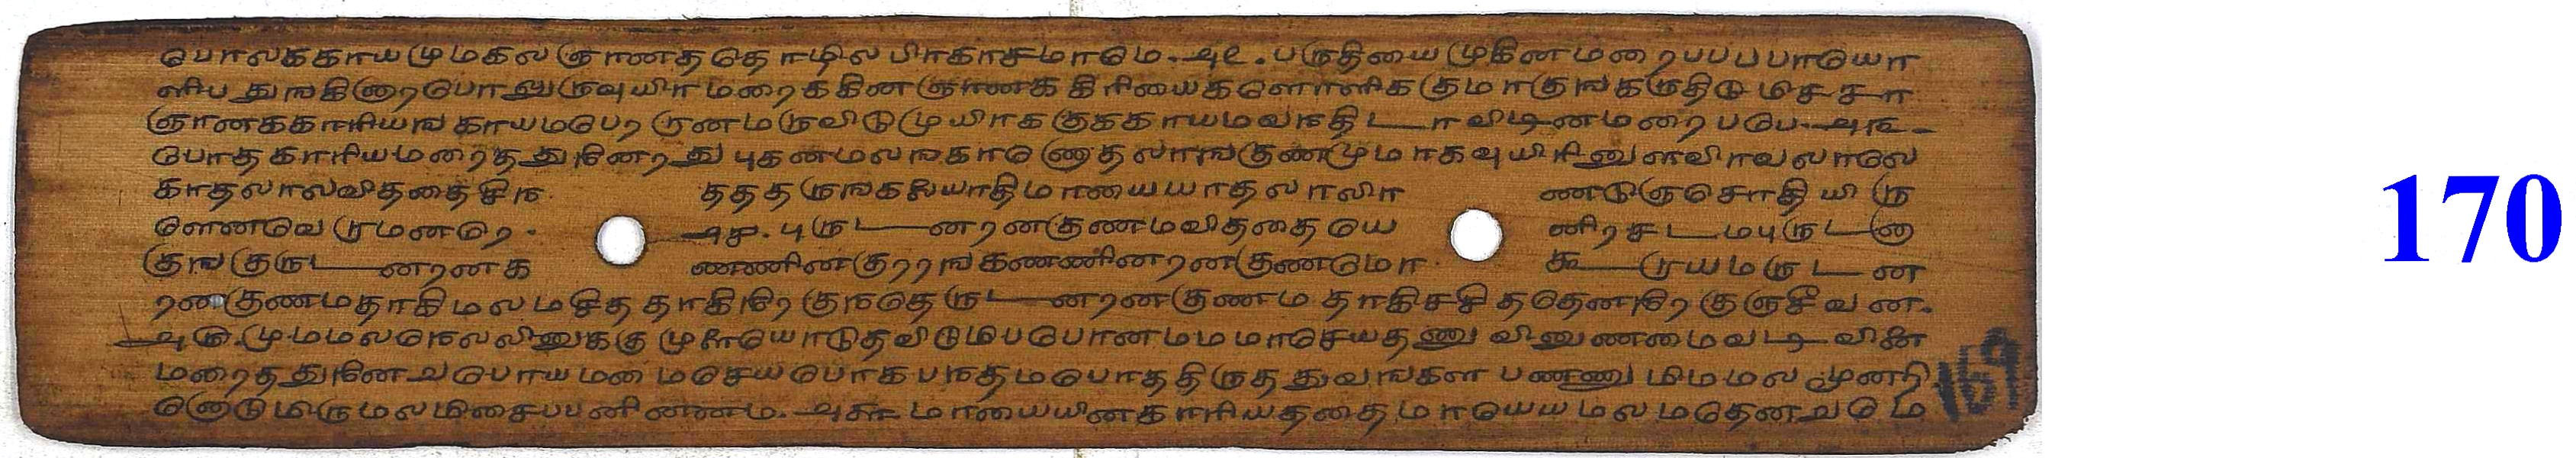 பொலககாயமுமகலஞானததொழிலபிரகாசமாமெ. ௮௨. பருதியைமுகினமறைபபபபாயொ
ளிபதுஙகினாறபொலுருவுயிரமறைககினஞானககிரியைகளொளிககுமாகுஙகருதிடுமிசசா
ஞானககாரியஙகாயமபெறருனமருவிடுமுயிராககுககாயமவநதிடாவிடினமறைபபெ. ௮௩.
பொதகாரியமறைததுநினறதுபுகனமலஙகாணெதலாஙகுணமுமாகவுயிரினுளவிரவலாலெ
காதலாலவிததைசிந ததததருஙகலையாதிமாயையாதலாலிர ணடுஞசொதியிரு
ளெனவெருமனறெ. ௮௪. புருடனறனகுணமவிததையெ னிறசடமபுருடனா
குஙகுருடனறனக ணணினகுறறஙகணணினறனகுணடுமா கூருயமருடன
றனகுணமதாகிமலமசிததாகிநிறகுநதெருடனறனகுணமதாகிசசிததெனநிறகுஞசீவன.
௮௫. முமமலநெலலினுககுமுளையொடுதவிடுமிபபொனமமமாசெயதணுவினுணமைவடிவினை
மறைததுநினறுபொயமமைசெயபொகபநதமபொததிருததுவஙகள பணணுமிமமலமூனறி
னொடுமிருமலமிசைபபனினனம. ௮௬ மாயையினகாரியததைமாயெயமலமதெனறுமெ
169
170